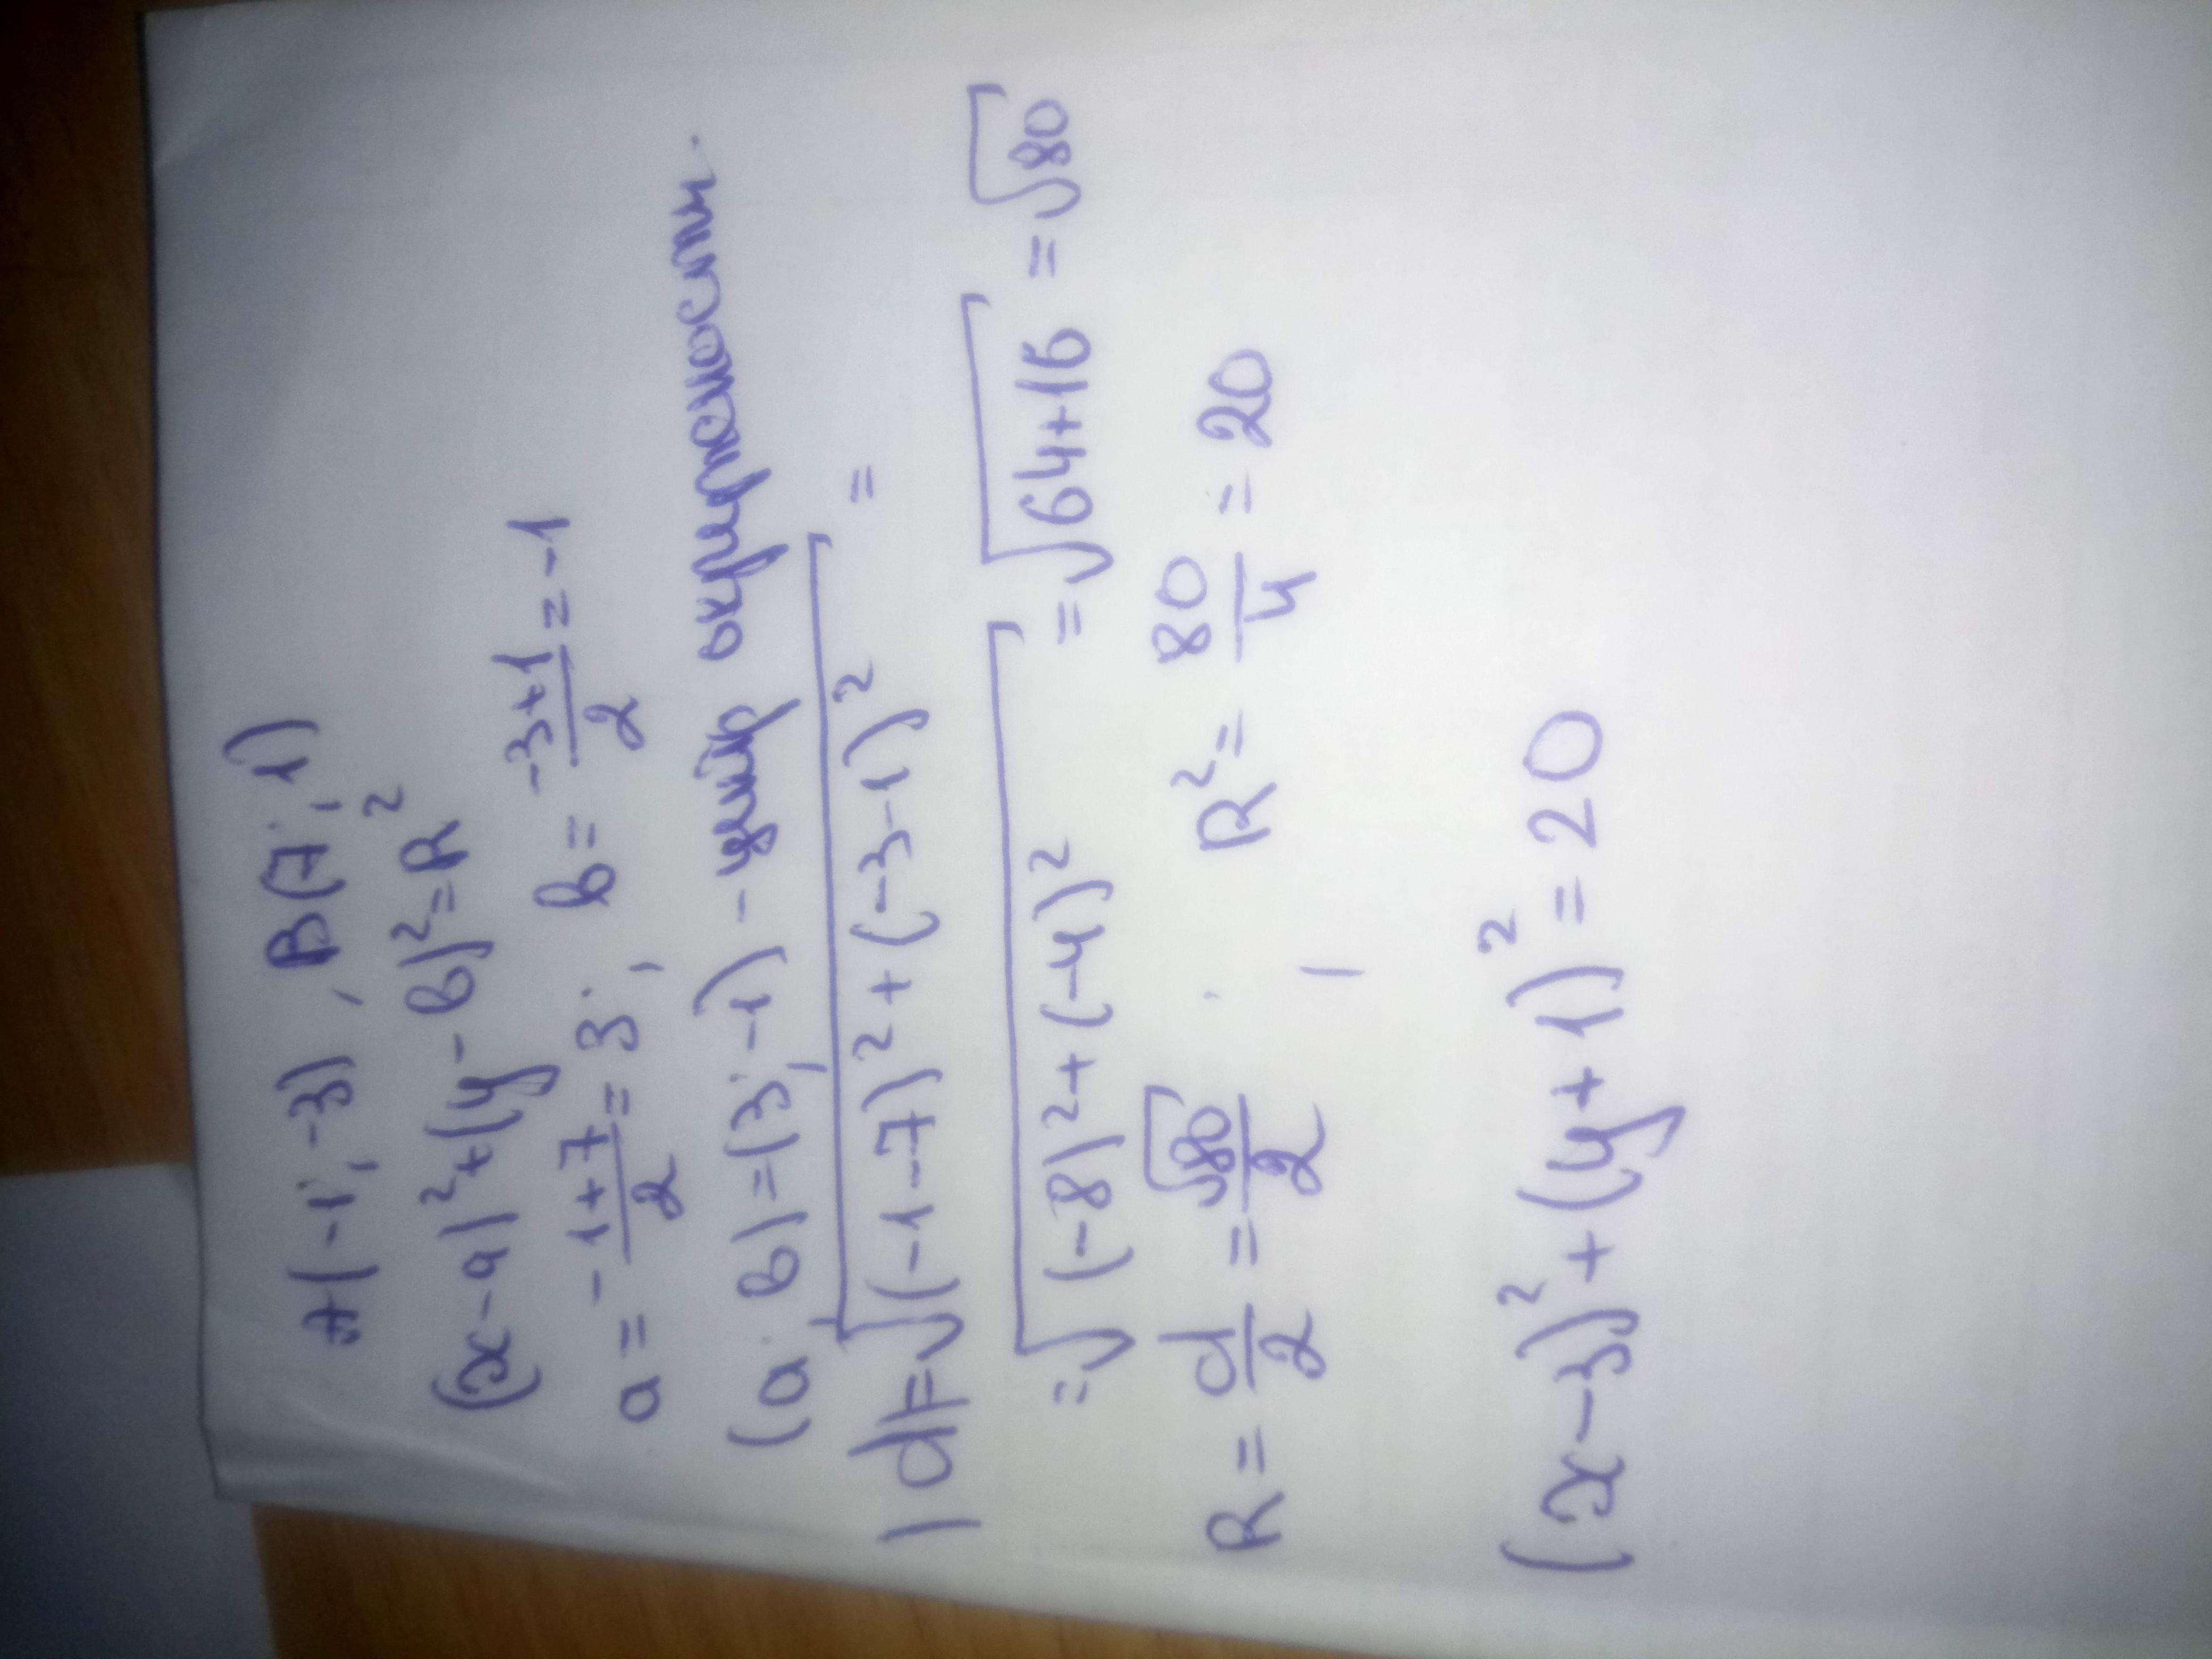 A(-1;-3), B(7;1)
(x-a)²+(y-в)²=R²
a = \frac{-1+7}{2} = 3; в = \frac{-3+1}{2} = -1
(a; в)=(3;-1) - центр окружности.
|d|=√((-1-7)²+(-3-1)²) =
=√((-8)²+(-4)²) =√(64+16) =√80
R = \frac{d}{2} = \frac{√80}{2}, R² = \frac{80}{4} = 20
(x-3)²+(y+1)²=20